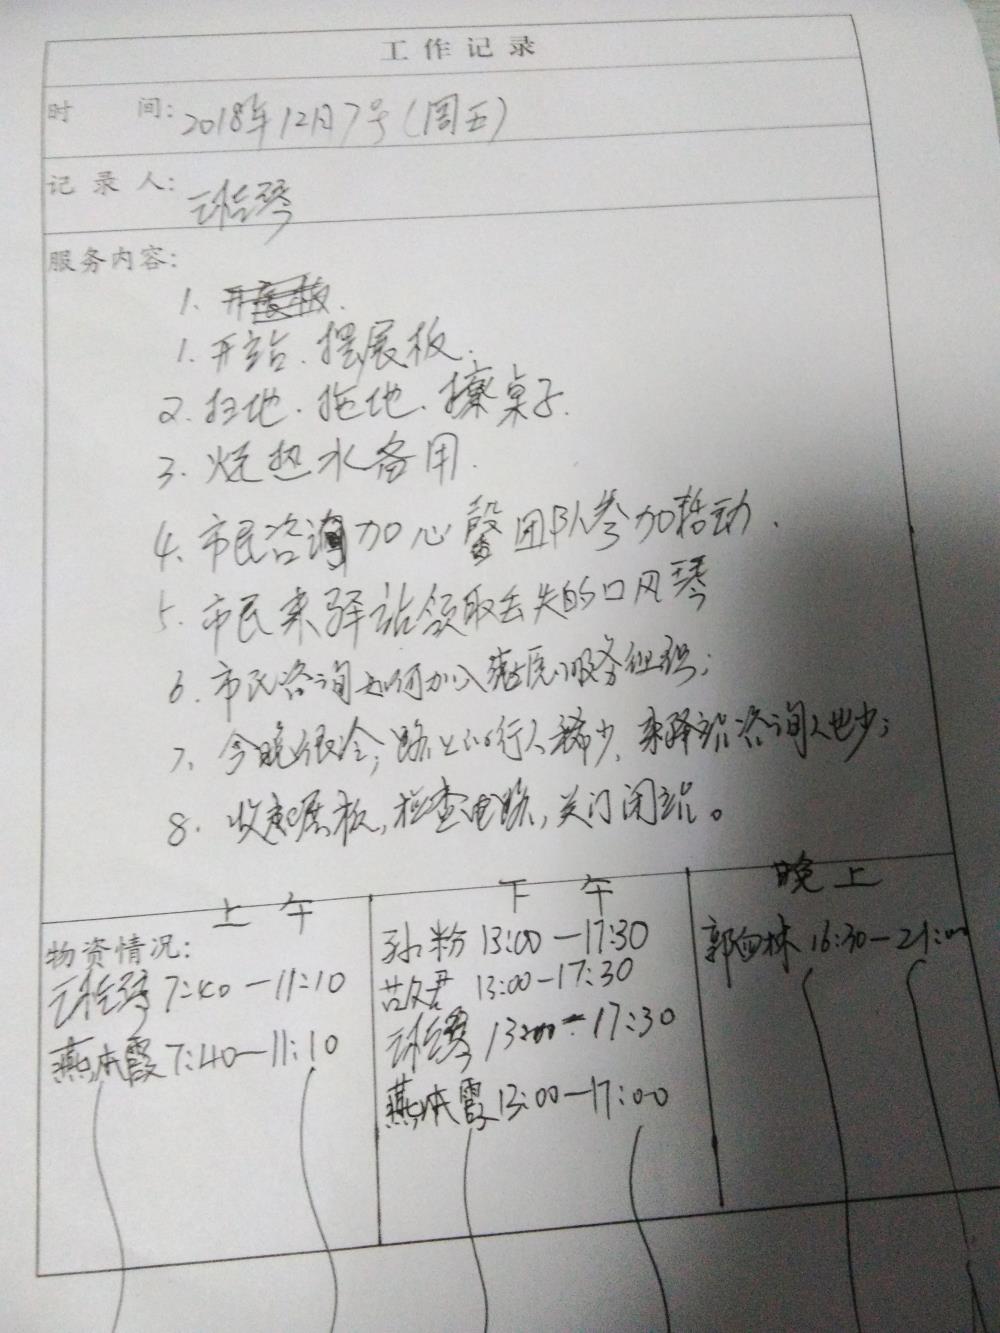 工作记录
时 间: 2018年12月7号(周五)
记录人:
服务内容:
1. 开展板.
1. 开站、摆展板.
2. 扫地、拖地、擦桌子.
3. 烧热水备用.
4. 市民咨询加心馨团队参加活动.
5. 市民来驿站领取丢失的口风琴
6. 市民咨询如何加入服务组织;
7、今晚很冷,路上的行人稀少,来驿站咨询人也少;
8. 收起展板,检查电路,关门闭站。
上午 下午 晚上
物资情况:
7:40—11:10
燕本霞 7:40—11:10
孙粉 13:00—17:30
苗君 13:00—17:30
13:00—17:30
燕本霞 13:00—17:00
郭 林 16:30—21:00